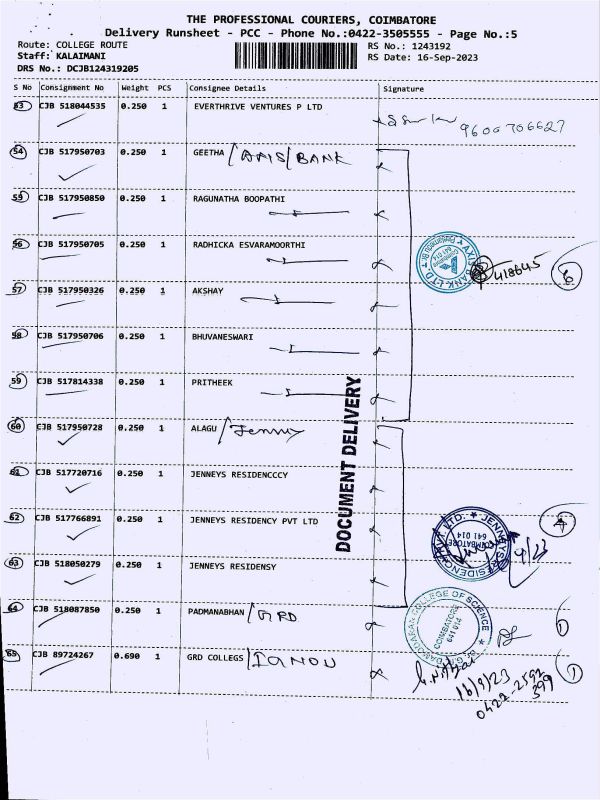 THE PROFESSIONAL COURIERS, COIMBATORE
Delivery Runsheet - PCC - Phone No.:0422-3505555 - Page No.:5
Route: COLLEGE ROUTE RS No.: 1243192
Staff: KALAIMANI RS Date: 16-Sep-2023
DRS No.: DCJB124319205
S No Consignment No Weight PCS Consignee Details Signature
53 CJB 518044535 0.250 1 EVERTHRIVE VENTURES P LTD
9600706627
54 CJB 517950703 0.250 1 GEETHA / AXIS / BANK
55 CJB 517950850 0.250 1 RAGUNATHA BOOPATHI
56 CJB 517950705 0.250 1 RADHICKA ESVARAMOORTHI
AXIS BANK LTD.
641 014
418645 6
57 CJB 517950326 0.250 1 AKSHAY
58 CJB 517950706 0.250 1 BHUVANESWARI
59 CJB 517814338 0.250 1 PRITHEEK
DOCUMENT DELIVERY
60 CJB 517950728 0.250 1 ALAGU / Jenney
61 CJB 517720716 0.250 1 JENNEYS RESIDENCCCY
62 CJB 517766891 0.250 1 JENNEYS RESIDENCY PVT LTD
JENNEYS RESIDENCY PVT. LTD.
COIMBATORE
641 014
4
63 CJB 518050279 0.250 1 JENNEYS RESIDENSY
64 CJB 518087850 0.250 1 PADMANABHAN / GRD
COLLEGE OF SCIENCE
COIMBATORE
641 014
1
65 CJB 89724267 0.690 1 GRD COLLEGS / IGNOU
1
16/9/23
0422-2592
399